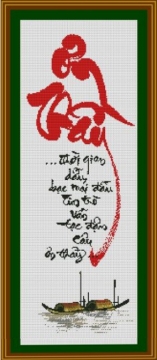 Ơn
Thầy
...thời gian
dẫu
bạc mái đầu
tim trò
vẫn
tạc đậm
câu
ơn thầy